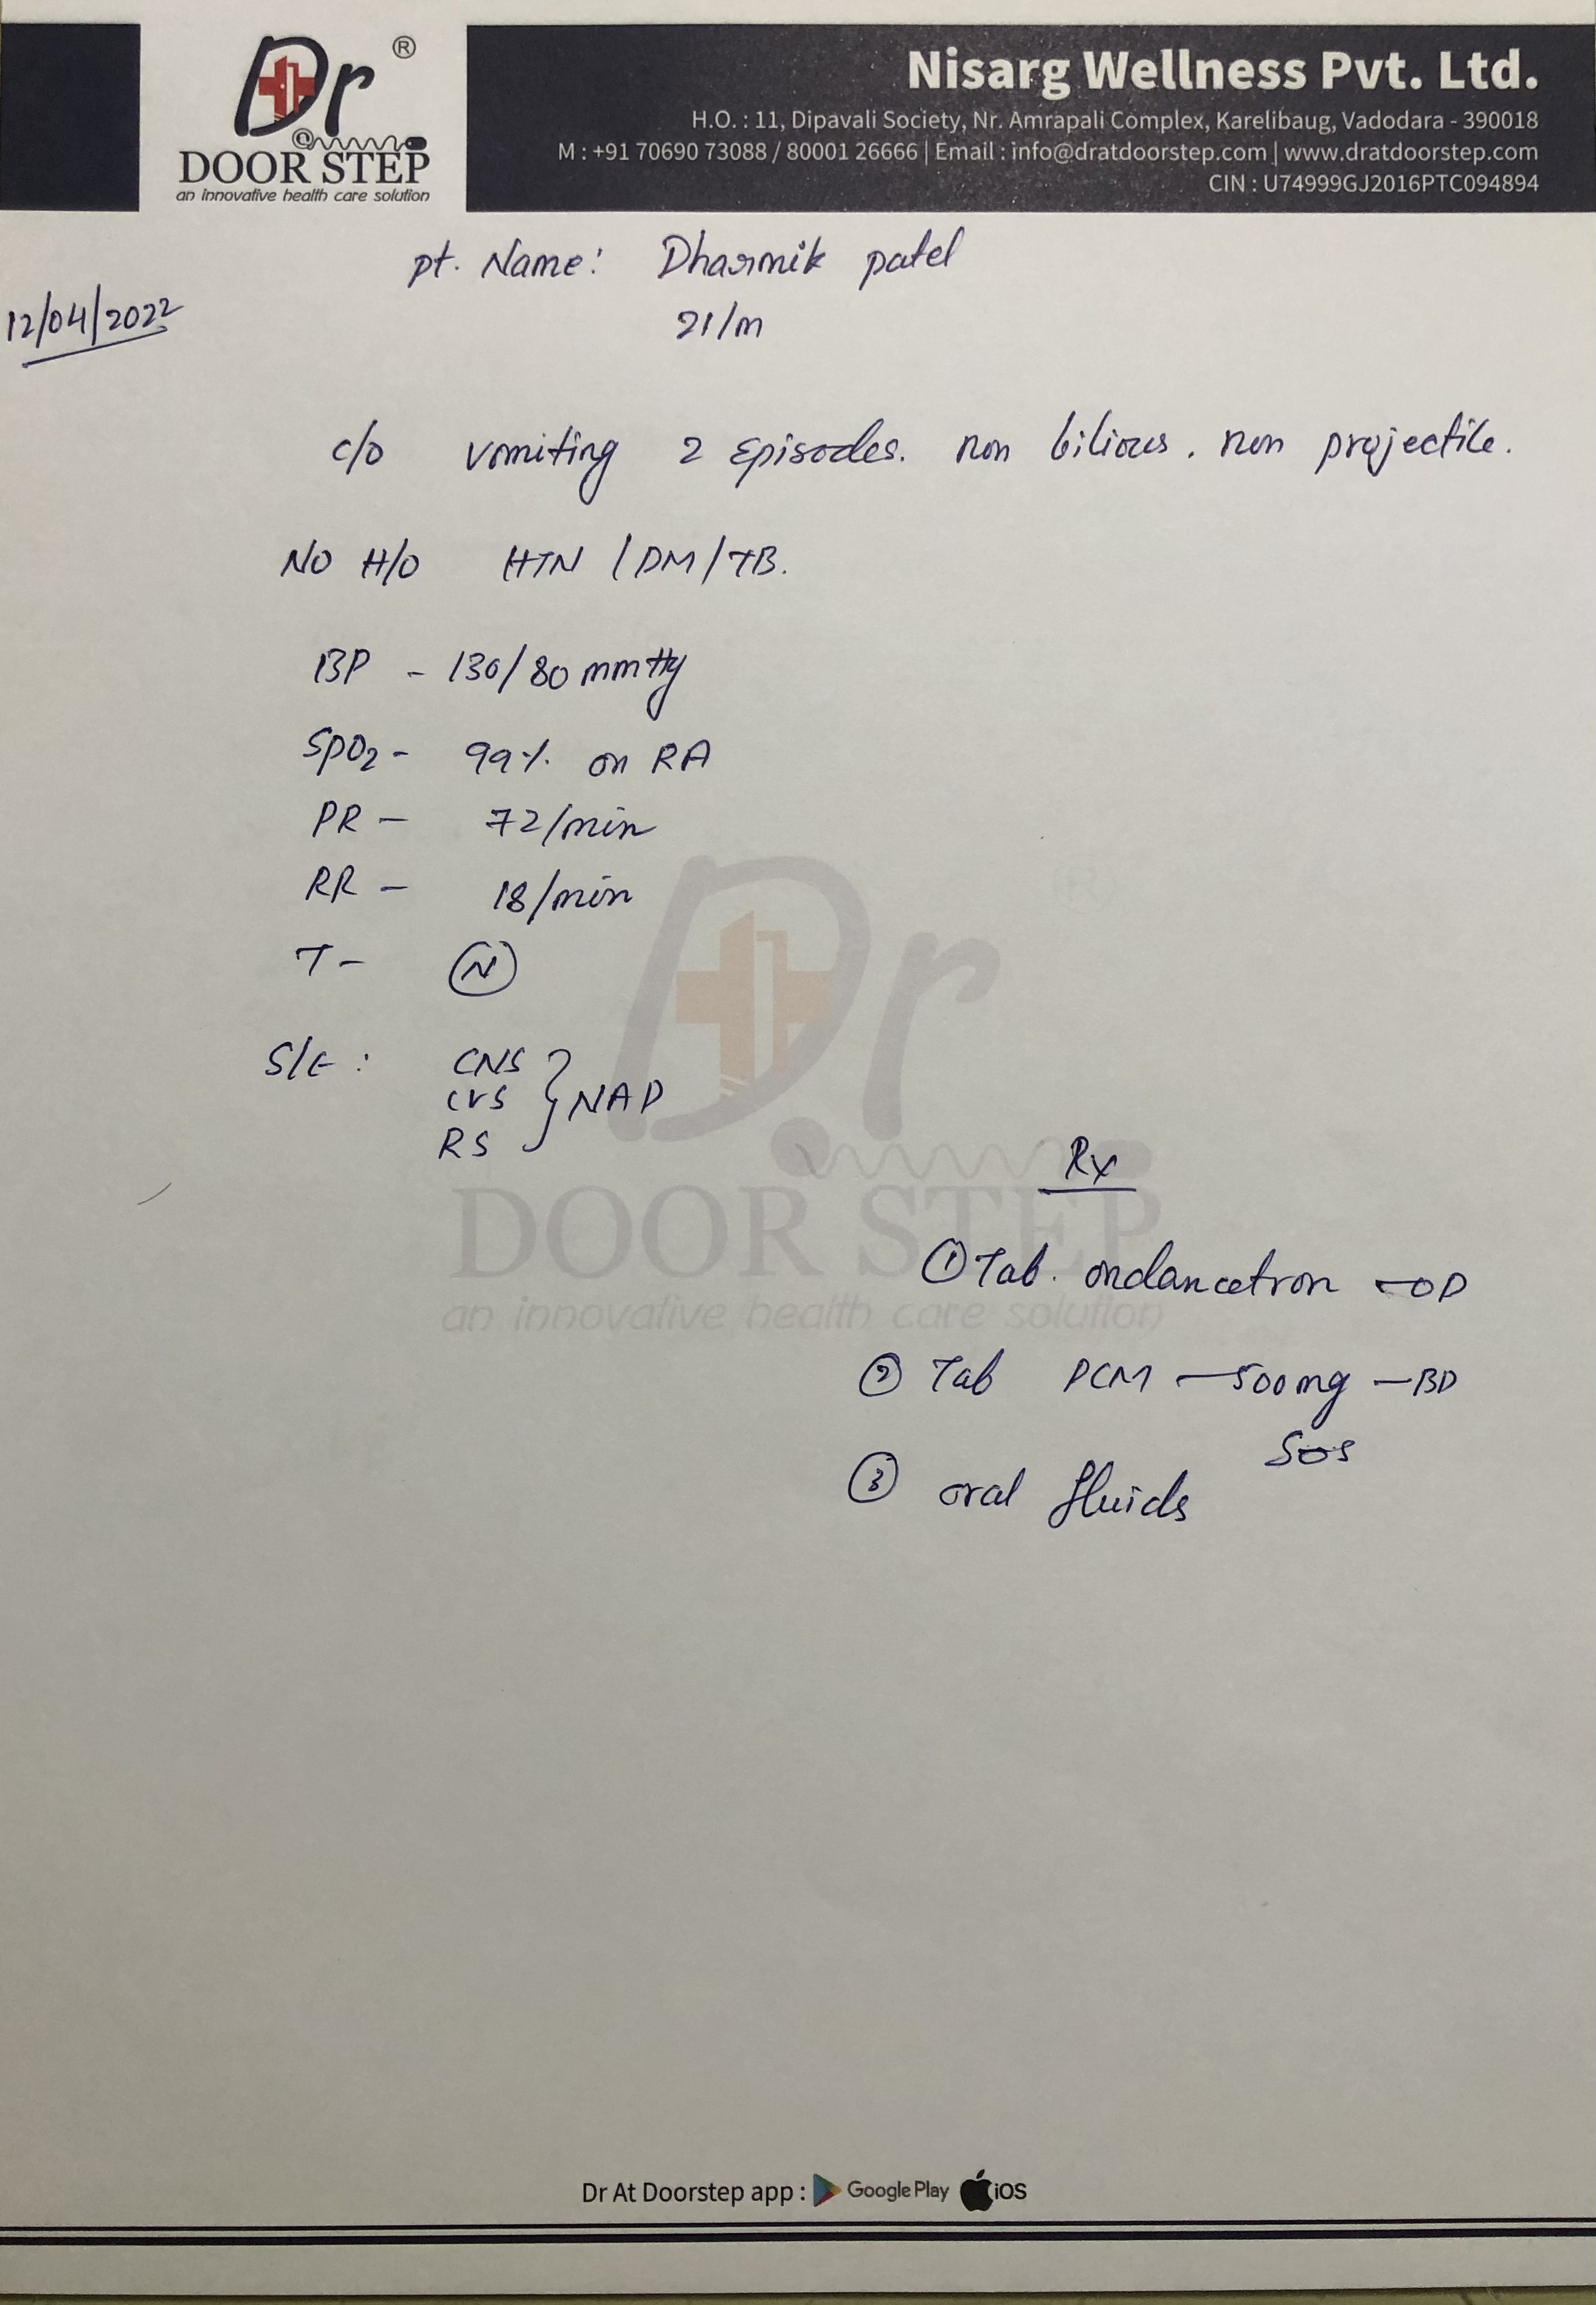 Dr ®
@
DOOR STEP
an innovative health care solution
Nisarg Wellness Pvt. Ltd.
H.O. : 11, Dipavali Society, Nr. Amrapali Complex, Karelibaug, Vadodara - 390018
M : +91 70690 73088 / 80001 26666 | Email : info@dratdoorstep.com | www.dratdoorstep.com
CIN : U74999GJ2016PTC094894
pt. Name: Dharmik patel
12/04/2022
21/m
c/o vomiting 2 Episodes. non bilious. non projectile.
NO H/O HTN / DM / TB.
BP - 130/80 mmHg
SpO2 - 99% on RA
PR - 72/min
RR - 18/min
T - N
S/E : CNS
CVS } NAD
RS
Rx
① Tab. ondancetron - OD
② Tab PCM - 500mg - BD
SOS
③ oral fluids
Dr
DOOR STEP
an innovative health care solution
Dr At Doorstep app : Google Play iOS